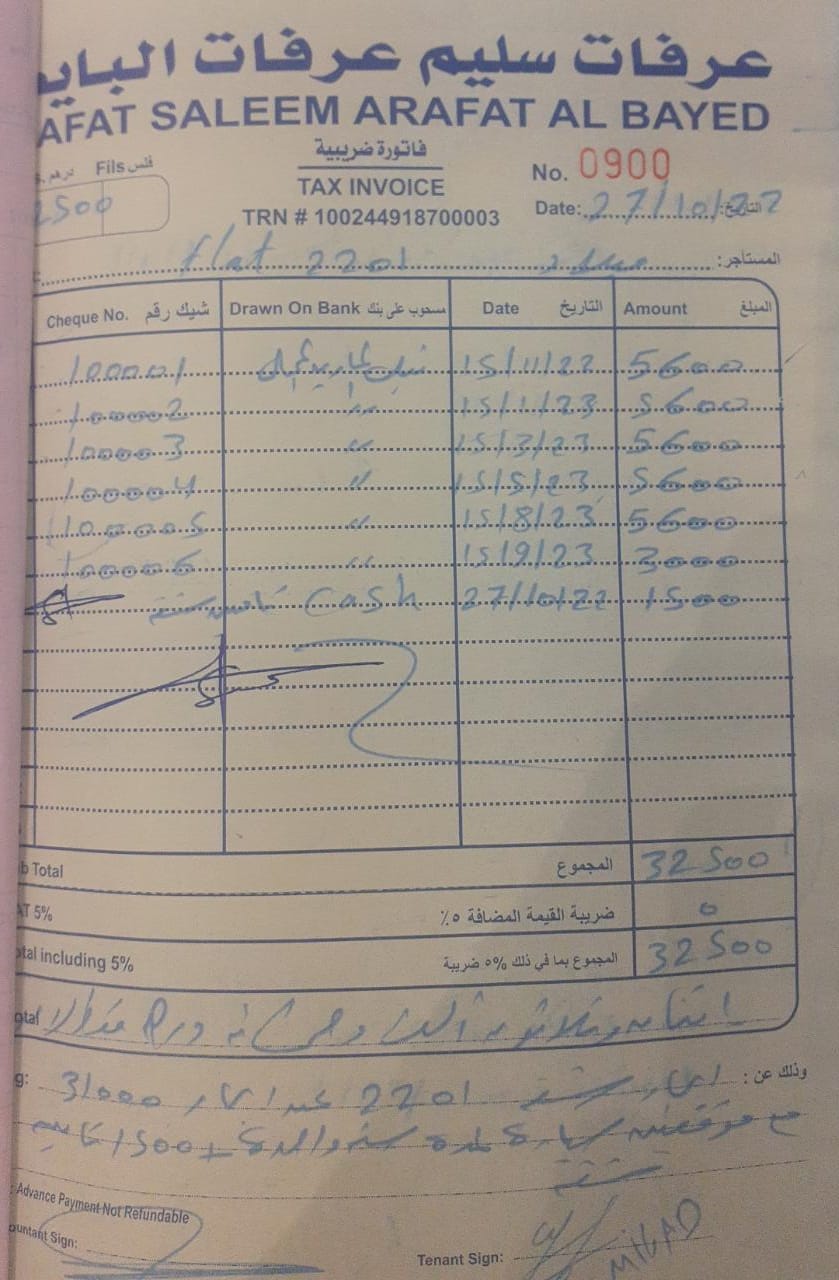 عرفات سليم عرفات الباي
AFAT SALEEM ARAFAT AL BAYED
فاتورة ضريبية
TAX INVOICE
TRN # 100244918700003
No. 0900
Date: 27/10/22 التاريخ:
درهم Fils فلس
2500
المستأجر: ميلاد flat 2201
Cheque No. شيك رقم Drawn On Bank مسحوب على بنك Date التاريخ Amount المبلغ
100001 15/11/22 5600
100002 " 15/1/23 5600
100003 " 15/3/23 5600
100004 " 15/5/23 5600
100005 " 15/8/23 5600
100006 " 15/9/23 3000
Cash 27/10/22 1500
b Total المجموع 32500
AT 5% ضريبة القيمة المضافة ٥٪ 0
otal including 5% المجموع بما في ذلك ٥% ضريبة 32500
otal
g: 2201 31000 وذلك عن :
1500
Advance Payment Not Refundable
ountant Sign:
Tenant Sign: MILAD